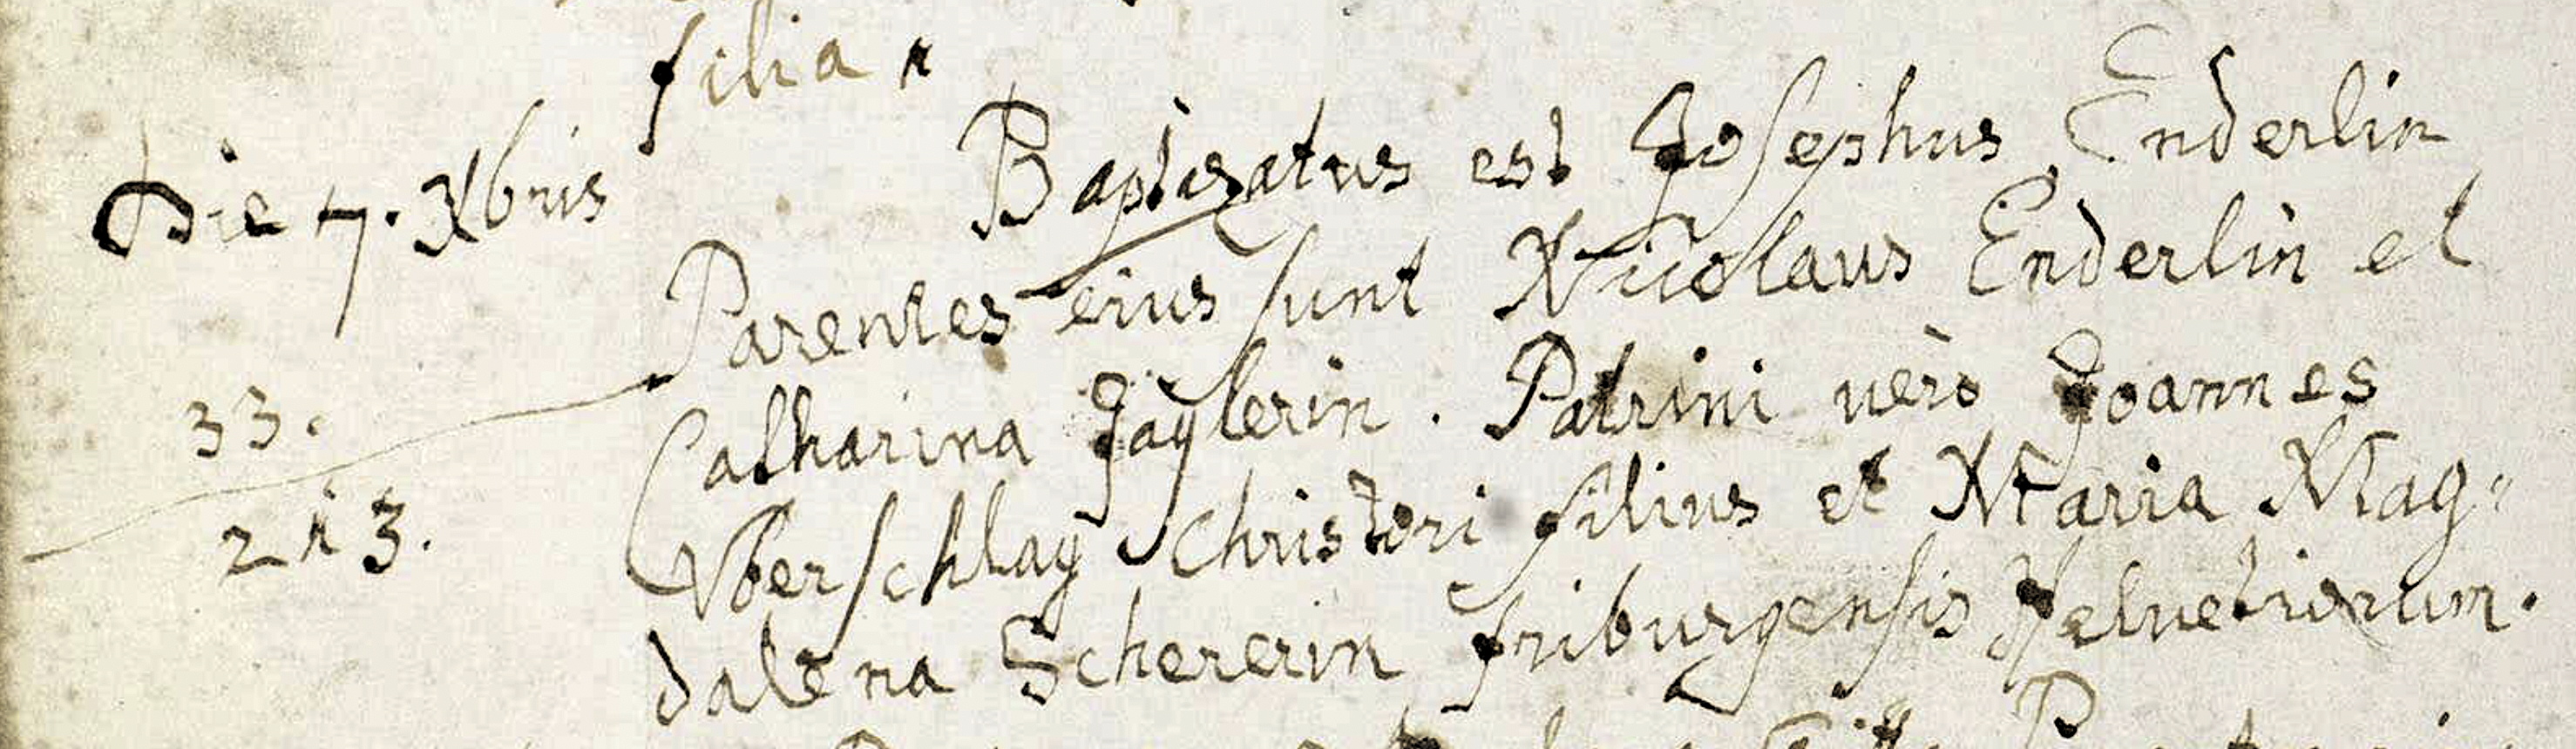 filia
Die 7. Xbris Baptizatus est Josephus Enderlin
Parentes eius sunt Nicolaus Enderlin et
33. Catharina Jäÿlerin. Patrini verò Joannes
213. Vberschlag Christori filius et Maria Mag=
dalena Schererin friburgensis Helvetiorum.